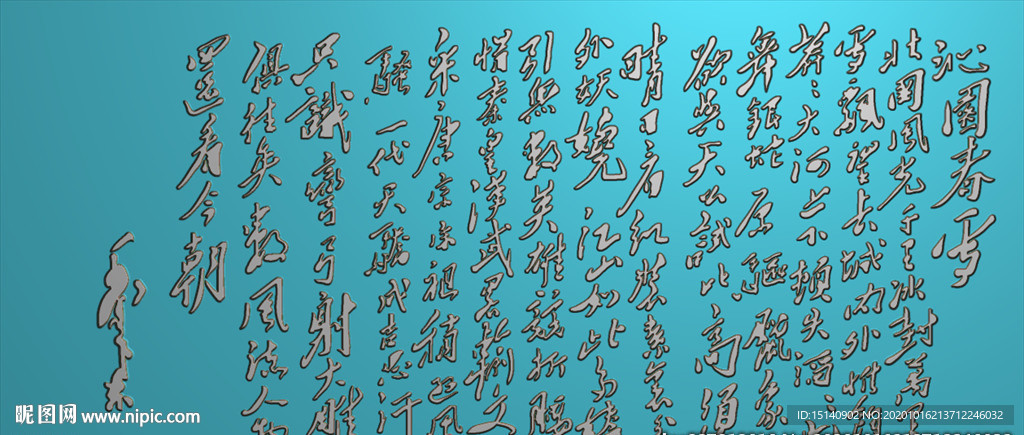 沁园春雪
北国风光千里冰封万里
雪飘望长城内外惟余
莽莽大河上下顿失滔
舞银蛇原驰腊象
欲与天公试比高须
晴日看红装素裹
外妖娆江山如此多娇
引无数英雄竞折腰
惜秦皇汉武略输文
采唐宗宋祖稍逊风
骚一代天骄成吉思汗
只识弯弓射大雕
俱往矣数风流人
还看今朝
毛泽东
昵图网 www.nipic.com
ID:15140902 NO:20201016213712246032